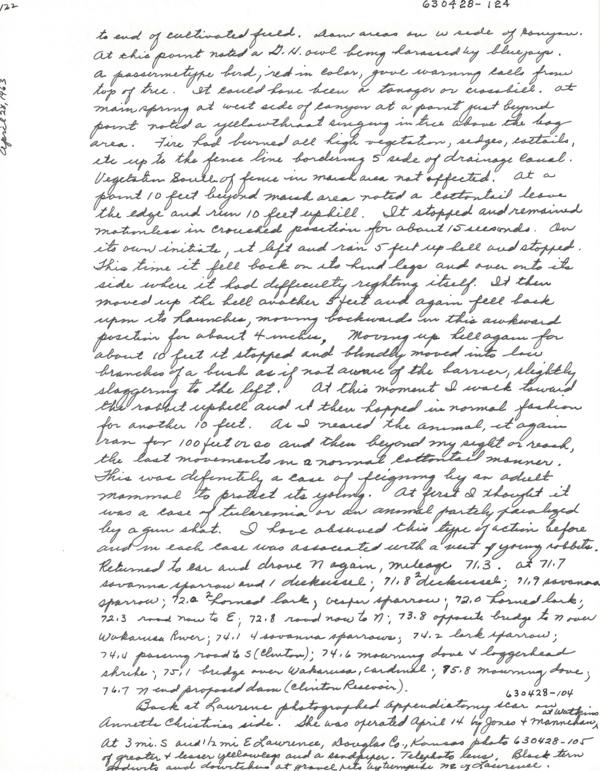 122
630428-124
April 28, 1963
to end of cultivated field. Dam areas on W side of canyon.
At this point noted a G.H. owl being harassed by bluejays.
A passerine type bird, red in color, gave warning calls from
top of tree. It could have been a tanager or crossbill. At
main spring at west side of canyon at a point just beyond
point noted a yellowthroat singing in tree above the bog
area. Fire had burned all high vegetation, sedges, cattails,
etc up to the fence line bordering S side of drainage canal.
Vegetation South of fence in marsh area not affected. At a
point 10 feet beyond marsh area noted a cottontail leave
the edge and run 10 feet uphill. It stopped and remained
motionless in crouched position for about 15 seconds. On
its own initiate, it left and ran 5 feet up hill and stopped.
This time it fell back on its hind legs and over onto its
side where it had difficulty righting itself. It then
moved up the hill another 5 feet and again fell back
upon its haunches, moving backwards in this awkward
position for about 4 inches, Moving up hill again for
about 10 feet it stopped and blindly moved into low
branches of a bush as if not aware of the barrier, slightly
staggering to the left. At this moment I walk toward
the rabbit uphill and it then hopped in normal fashion
for another 10 feet. As I neared the animal, it again
ran for 100 feet or so and then beyond my sight or reach,
the last movements in a normal, cottontail manner.
This was definitely a case of feigning by an adult
mammal to protect its young. At first I thought it
was a case of tularemia or an animal partly paralyzed
by a gun shot. I have observed this type of action before
and in each case was associated with a nest of young rabbits.
Returned to car and drove N again, mileage 71.3. at 71.7
savanna sparrow and 1 dickcissel; 71.8 2 dickcissel; 71.9 savanna
sparrow; 72.0 2 horned lark, vesper sparrow; 72.0 horned lark;
72.3 road now to E; 72.8 road now to N; 73.8 opposite bridge to N over
Wakarusa River; 74.1 4 savanna sparrows; 74.2 lark sparrow;
74.4 passing road to S (Clinton); 74.6 mourning dove & loggerhead
shrike; 75.1 bridge over Wakarusa, cardinal; 75.8 mourning dove;
76.7 N end proposed dam (Clinton Reservoir).
630428-104
Back at Lawrence photographed appendectomy scar on
Annette Christines side. She was operated April 14 by Jones & Mannahan, at Watkins
At 3 mi. S and 1/2 mi E Lawrence, Douglas Co., Kansas photo 630428-105
of greater & lesser yellowlegs and a sandpiper. Telephoto lens. Black tern
godwits and dowitchers at gravel pits NE of Lawrence.